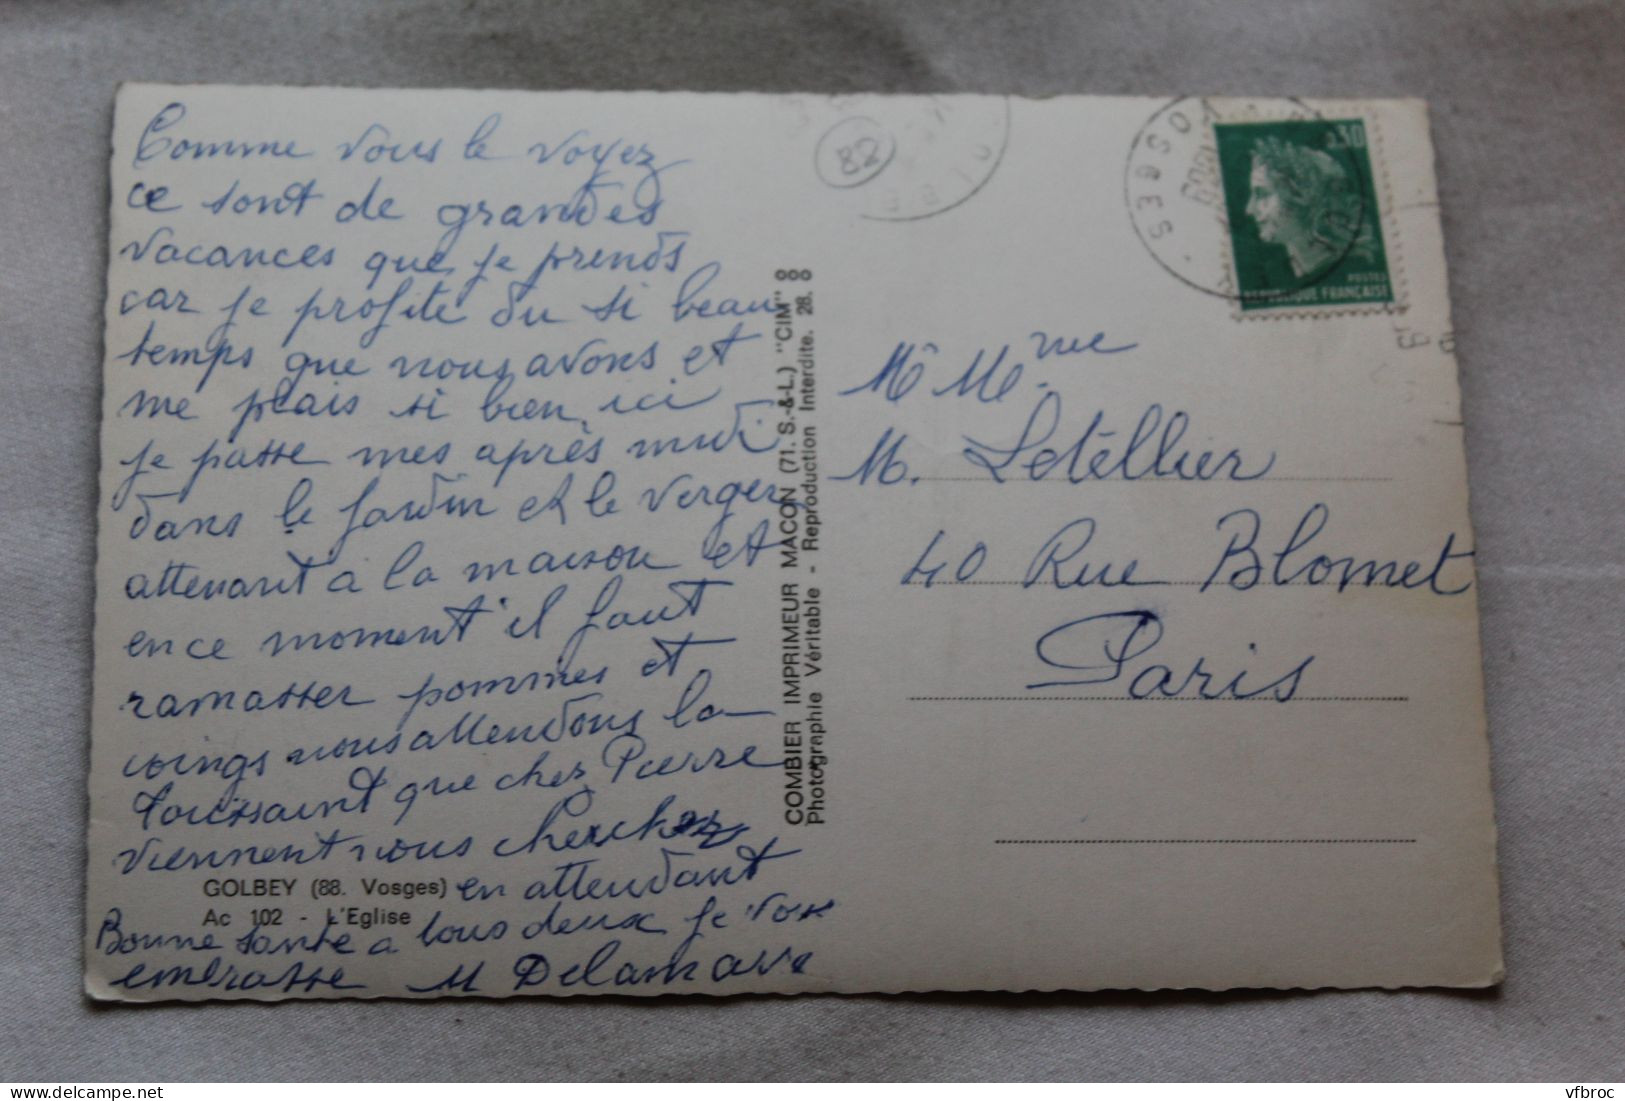 Comme vous le voyez
ce sont de grandes
vacances que je prends
car je profite du si beau
temps que nous avons et
me plais si bien ici
je passe mes après midi
dans le jardin et le verger
attenant à la maison et
en ce moment il faut
ramasser pommes et
coings nous attendons la
Toussaint que chez Pierre
viennent nous chercher
en attendant
Bonne santé a tous deux je vous
embrasse M Delamarre
GOLBEY (88. Vosges)
Ac 102 - L'Eglise
COMBIER IMPRIMEUR MACON (71. S.-&-L.) "CIM" ooo
Photographie Véritable - Reproduction Interdite. 28. o
82
VOSGES
0,30
POSTES
REPUBLIQUE FRANÇAISE
Mr Mme
M. Letellier
40 Rue Blomet
Paris
vfbroc